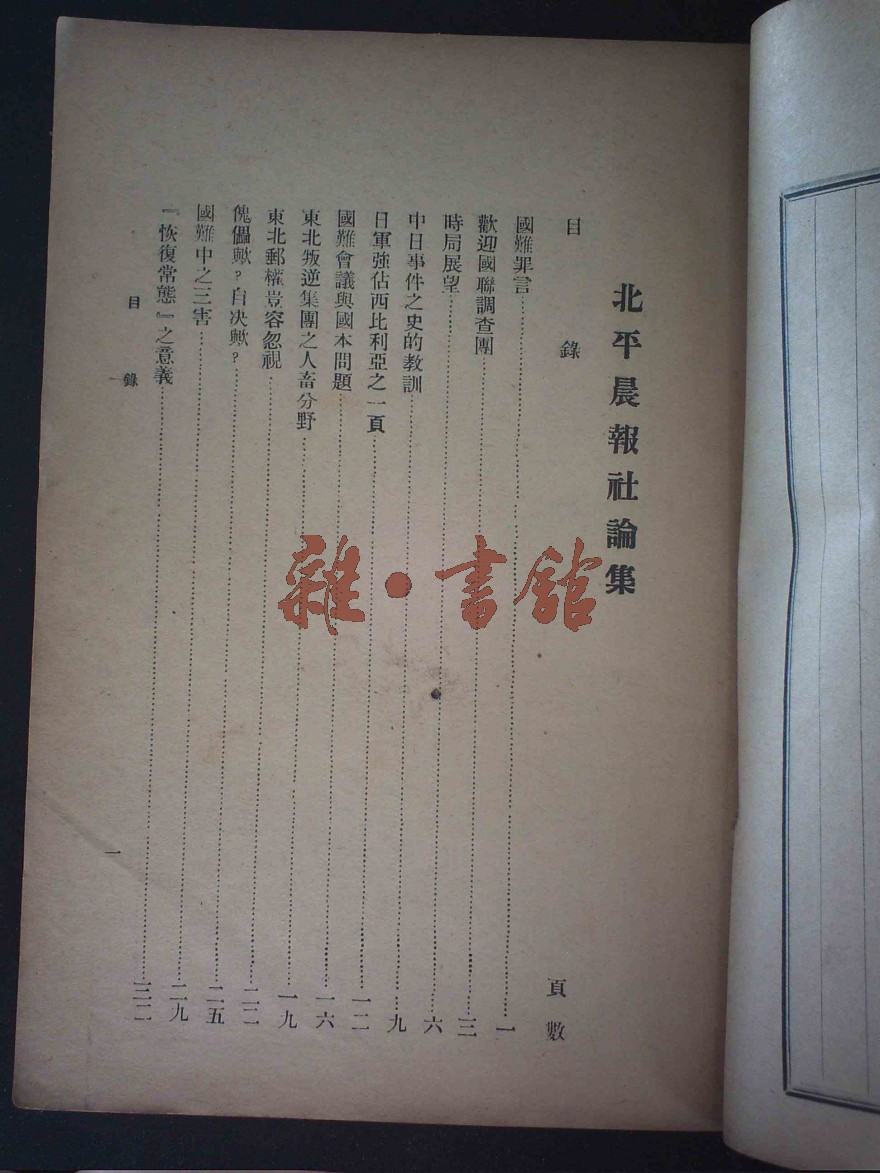 北平晨報社論集
目錄 頁數
國難罪言 一
歡迎國聯調查團 三
時局展望 六
中日事件之史的教訓 九
日軍強佔西比利亞之一頁 一二
國難會議與國本問題 一六
東北叛逆集團之人畜分野 一九
東北郵權豈容忽視 二二
傀儡歟?自决歟? 二五
國難中之三害 二九
『恢復常態』之意義 三二
目錄 一
雜·書館